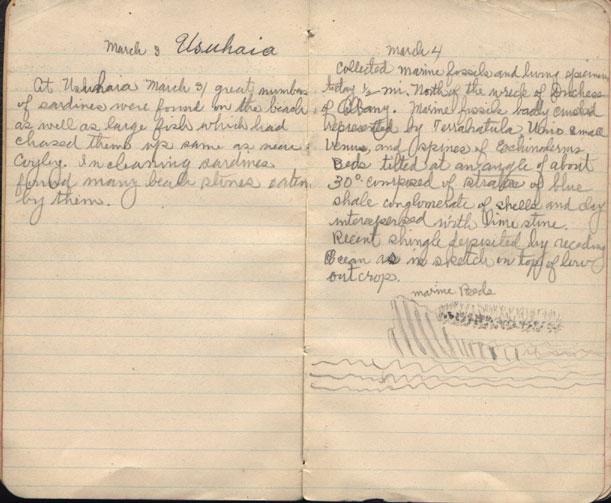 March 3 Usuhaia
At Usuhaia March 3/ great numbers
of sardines were found on the beach
as well as large fish which had
chased them up same as near
Coyley. In cleaning sardines
found many beach stones eaten
by them.
March 4
Collected marine fossils and living specimens
today ½ mi. North of the wreck of Duchess
of Albany. Marine fossils badly crushed
represented by Terrahatula Unio small
Venus, and spines of Echinoderms
Beds tilted at an angle of about
30° composed of stratae of blue
shale conglomerate of shells and clay
interspersed with lime stone.
Recent shingle deposited by receding
Ocean as in sketch on top of lower
outcrop.
marine Beds